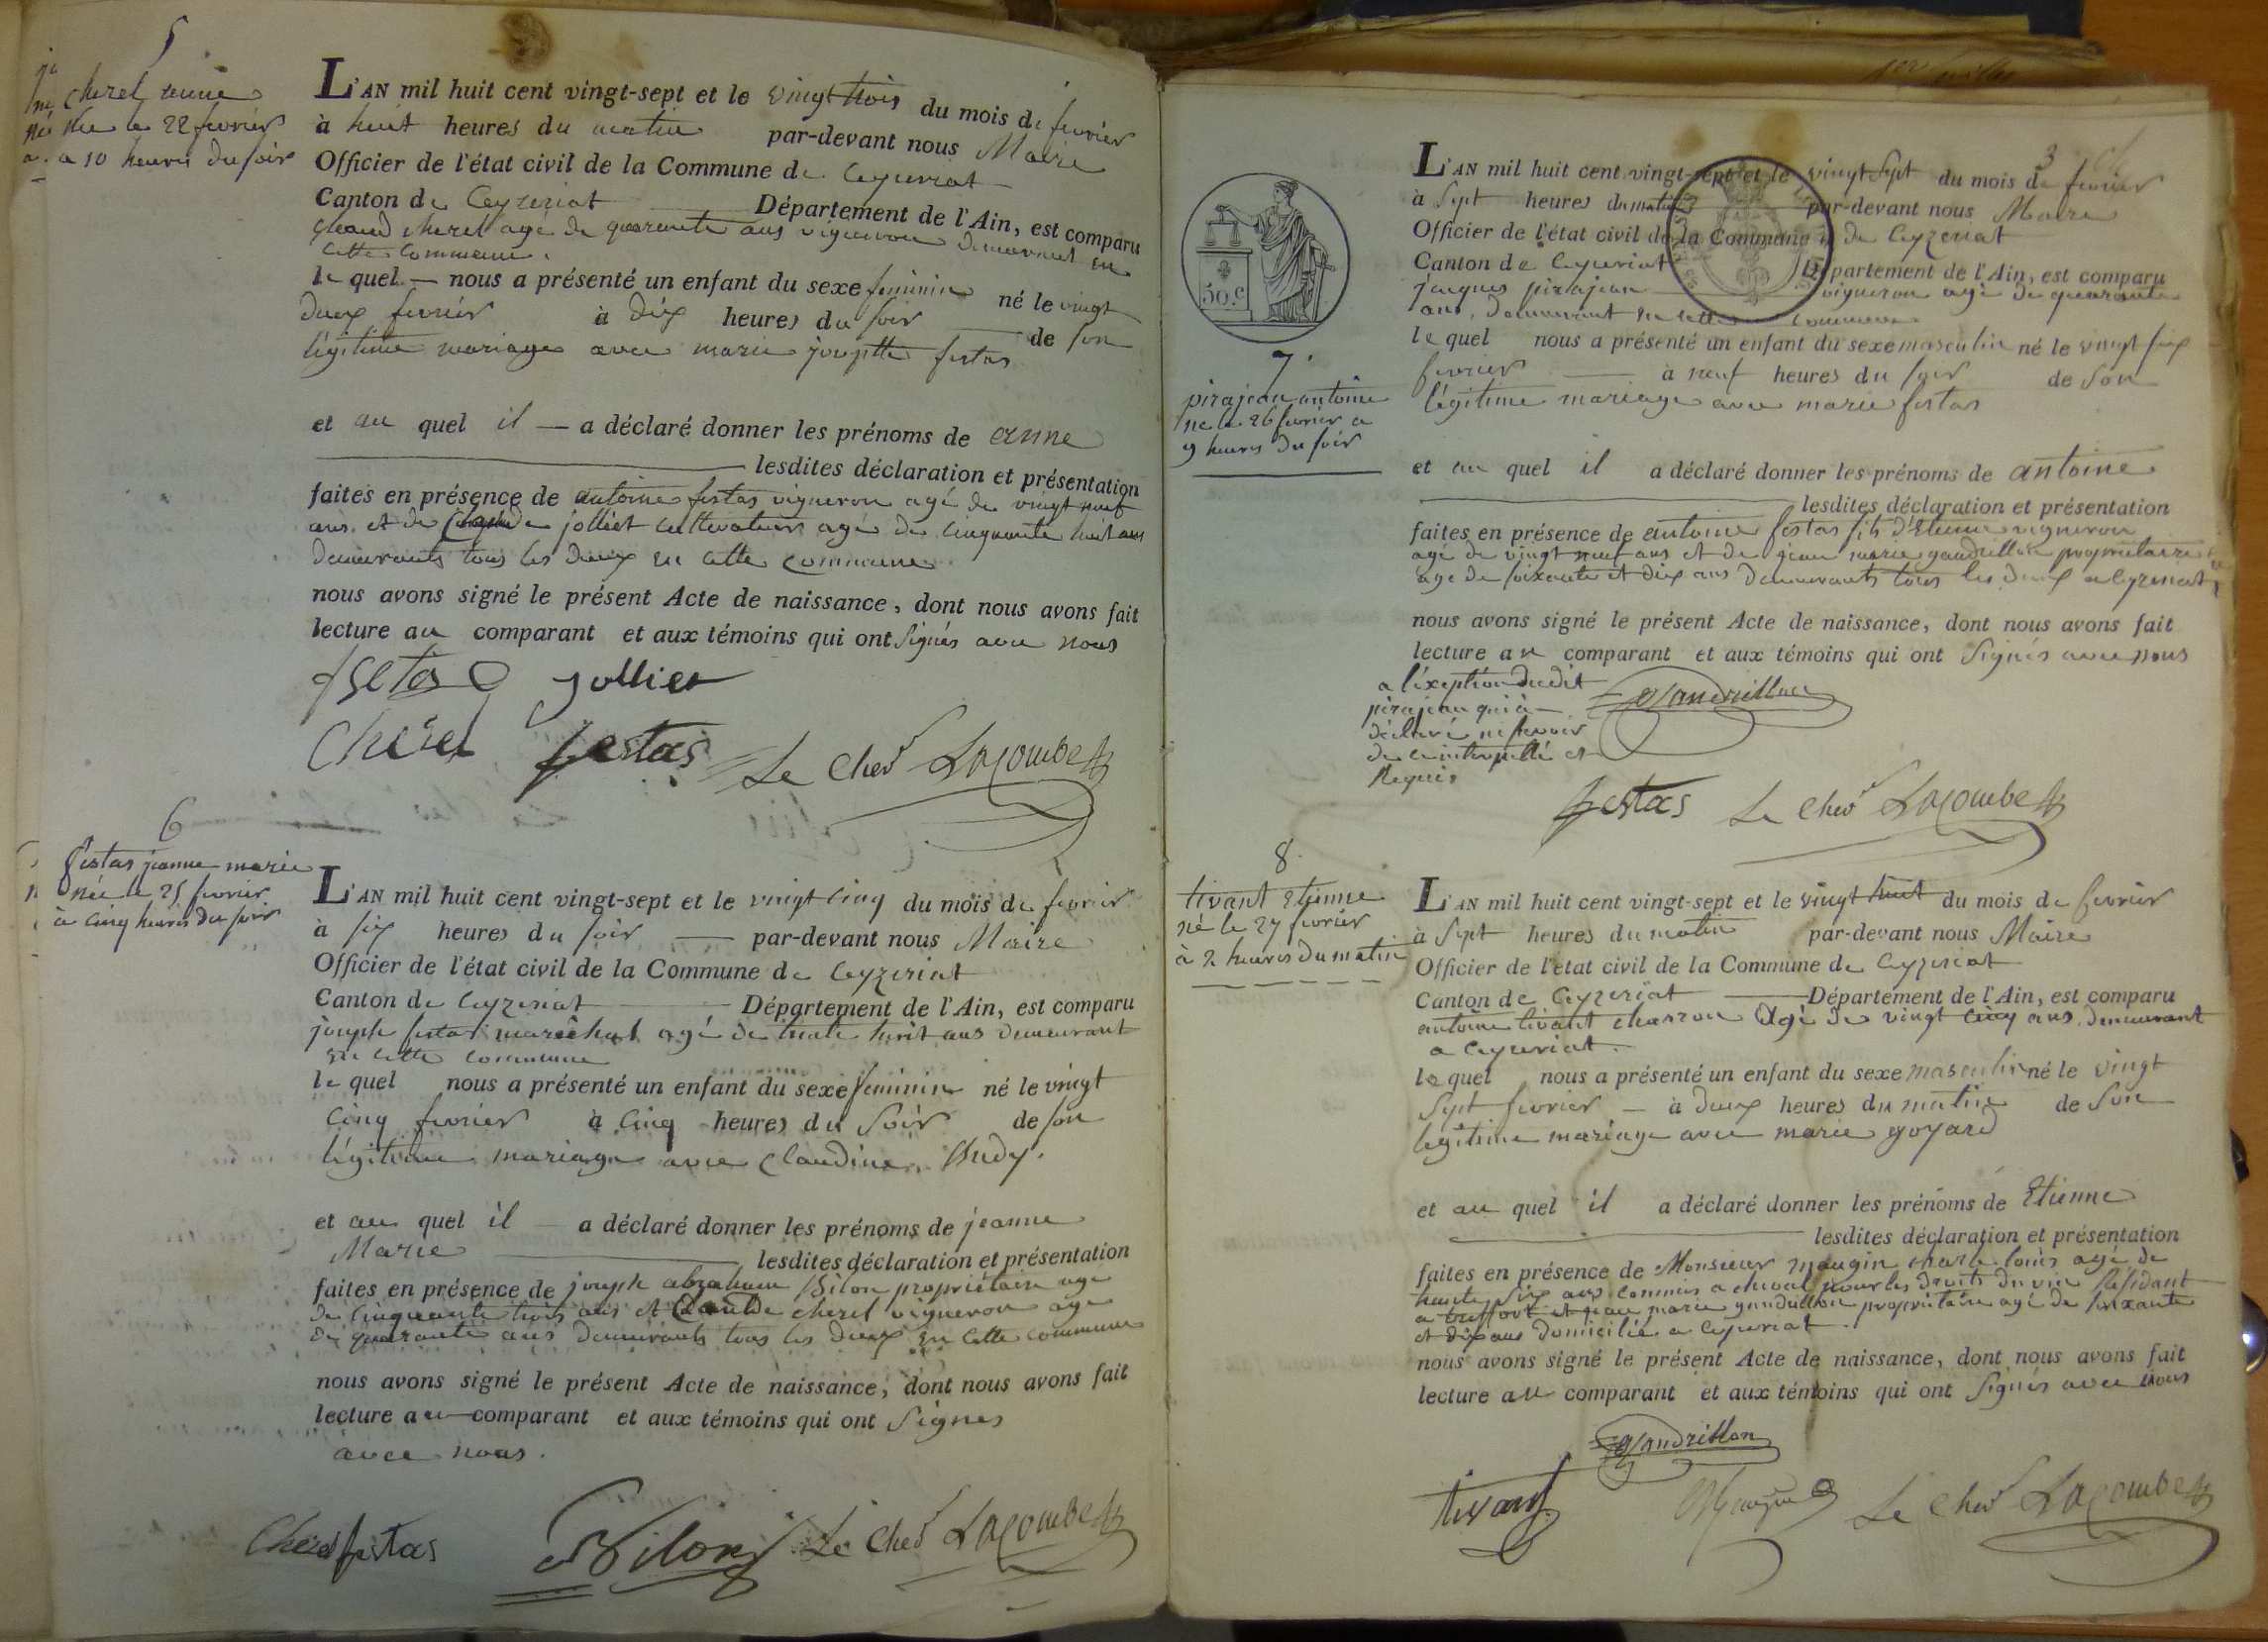 5
cherel anne
née le 22 fevrier
a 10 heures du soir
L'AN mil huit cent vingt-sept et le vingt trois du mois de fevrier
à huit heures du matin par-devant nous Maire
Officier de l'état civil de la Commune de Ceyzeriat
Canton de Ceyzeriat Département de l'Ain, est comparu
Claude cherel agé de quarante ans vigneron demeurant en
cette commune.
le quel nous a présenté un enfant du sexe feminin né le vingt
deux fevrier à dix heures du soir de son
légitime mariage avec marie josephte festas
et au quel il a déclaré donner les prénoms de anne
lesdites déclaration et présentation
faites en présence de antoine festas vigneron agé de vingt neuf
ans et de Claude jolliet cultivateur agé de cinquante huit ans
demeurants tous les deux en cette commune
nous avons signé le présent Acte de naissance, dont nous avons fait
lecture au comparant et aux témoins qui ont signés avec nous
festas jolliet
Cherel festas Le Chev^r Lacombe
6
festas jeanne marie
née le 25 fevrier
à cinq heures du soir
L'AN mil huit cent vingt-sept et le vingt cinq du mois de fevrier
à six heures du soir par-devant nous Maire
Officier de l'état civil de la Commune de Ceyzeriat
Canton de Ceyzeriat Département de l'Ain, est comparu
joseph festas maréchal agé de trente huit ans demeurant
en cette commune
le quel nous a présenté un enfant du sexe feminin né le vingt
cinq fevrier à cinq heures du soir de son
légitime mariage avec Claudine Budy.
et au quel il a déclaré donner les prénoms de jeanne
Marie lesdites déclaration et présentation
faites en présence de joseph abraham Bilon propriétaire agé
de cinquante trois ans et Claude cherel vigneron agé
de quarante ans demeurants tous les deux en cette commune
nous avons signé le présent Acte de naissance, dont nous avons fait
lecture au comparant et aux témoins qui ont signés
avec nous.
Cherel festas Bilon Le Chev^r Lacombe
3
50.c
7.
pirajean antoine
né le 26 fevrier a
9 heures du soir
L'AN mil huit cent vingt-sept et le vingt sept du mois de fevrier
à sept heures du matin par-devant nous Maire
Officier de l'état civil de la Commune de Ceyzeriat
Canton de Ceyzeriat Département de l'Ain, est comparu
jacques pirajean vigneron agé de quarante
ans, demeurant en cette commune
le quel nous a présenté un enfant du sexe masculin né le vingt six
fevrier à neuf heures du soir de son
légitime mariage avec marie festas
et au quel il a déclaré donner les prénoms de antoine
lesdites déclaration et présentation
faites en présence de antoine festas fils d'Etienne vigneron
agé de vingt neuf ans et de jean marie gandrillon propriétaire
agé de soixante et dix ans demeurants tous les deux a Ceyzeriat
nous avons signé le présent Acte de naissance, dont nous avons fait
lecture au comparant et aux témoins qui ont signés avec nous
a l'exeption dudit
pirajean qui a
déclaré ne savoir
de ce interpellé et
Requis
Gandrillon
festas Le Chev^r Lacombe
8.
tivant Etienne
né le 27 fevrier
à 2 heures du matin
L'AN mil huit cent vingt-sept et le vingt huit du mois de fevrier
à sept heures du matin par-devant nous Maire
Officier de l'état civil de la Commune de Ceyzeriat
Canton de Ceyzeriat Département de l'Ain, est comparu
antoine tivant charron agé de vingt cinq ans demeurant
a Ceyzeriat.
le quel nous a présenté un enfant du sexe masculin né le vingt
sept fevrier à deux heures du matin de son
légitime mariage avec marie goyard
et au quel il a déclaré donner les prénoms de Etienne
lesdites déclaration et présentation
faites en présence de Monsieur maugin charle louis agé de
trente six ans commis a cheval pour les droits du vin résidant
a treffort et jean marie gandrillon propriétaire agé de soixante
et dix ans domicilié a Ceyzeriat.
nous avons signé le présent Acte de naissance, dont nous avons fait
lecture au comparant et aux témoins qui ont signés avec nous
Gandrillon
tivant Maugin Le Chev^r Lacombe